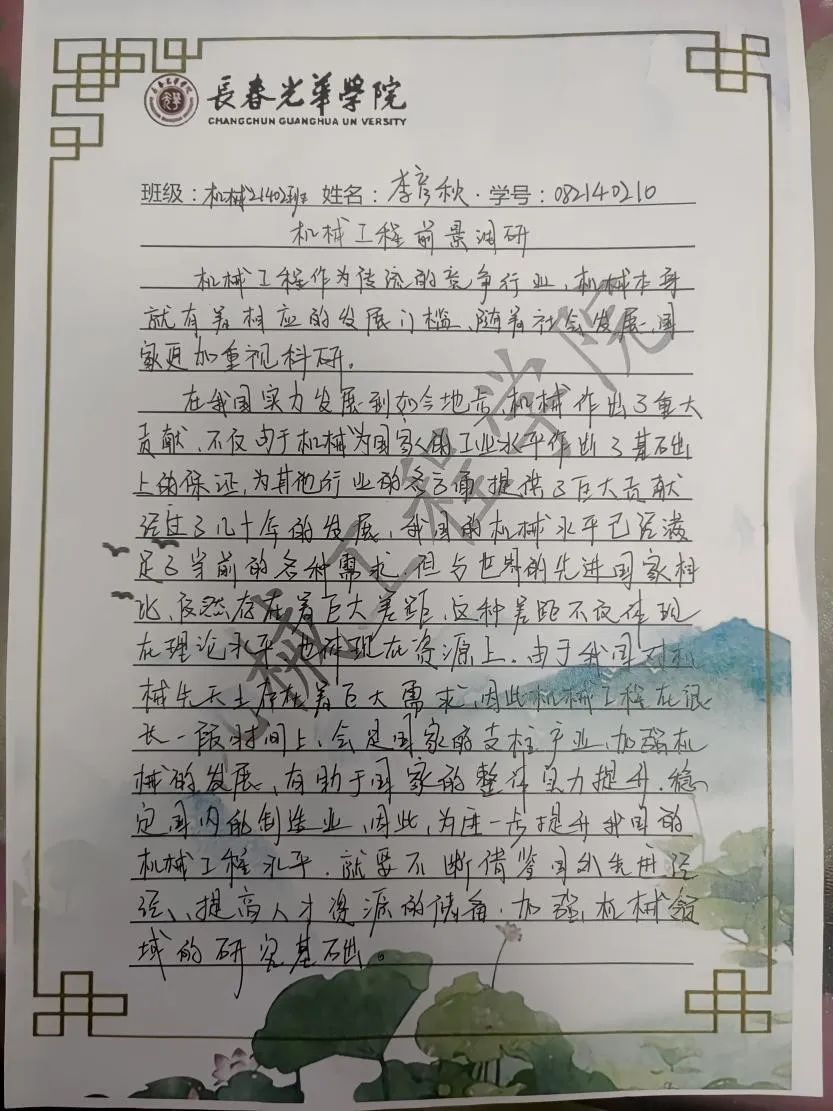 長春光華學院
CHANGCHUN GUANGHUA UN VERSITY
班级：机械21402班 姓名：李彦秋 学号：082140210
机械工程前景调研
机械工程作为传统的竞争行业，机械本身
就有着相应的发展门槛，随着社会发展，国
家更加重视科研。
在我国实力发展到如今地步，机械作出了重大
贡献，不仅由于机械为国家的工业水平作出了基础
上的保证，为其他行业的各方面提供了巨大贡献
经过了几十年的发展，我国的机械水平已经满
足了当前的各种需求，但与世界的先进国家相
比，仍然存在着巨大差距，这种差距不仅体现
在理论水平，也体现在资源上，由于我国对机
械先天上存在着巨大需求，因此机械工程在很
长一段时间上，会是国家的支柱产业，加强机
械的发展，有助于国家的整体实力提升，稳
定国内的制造业，因此，为进一步提升我国的
机械工程水平，就要不断借鉴国外先进经
经、提高人才资源的储备，加强机械领
域的研究基础。
机械工程学院